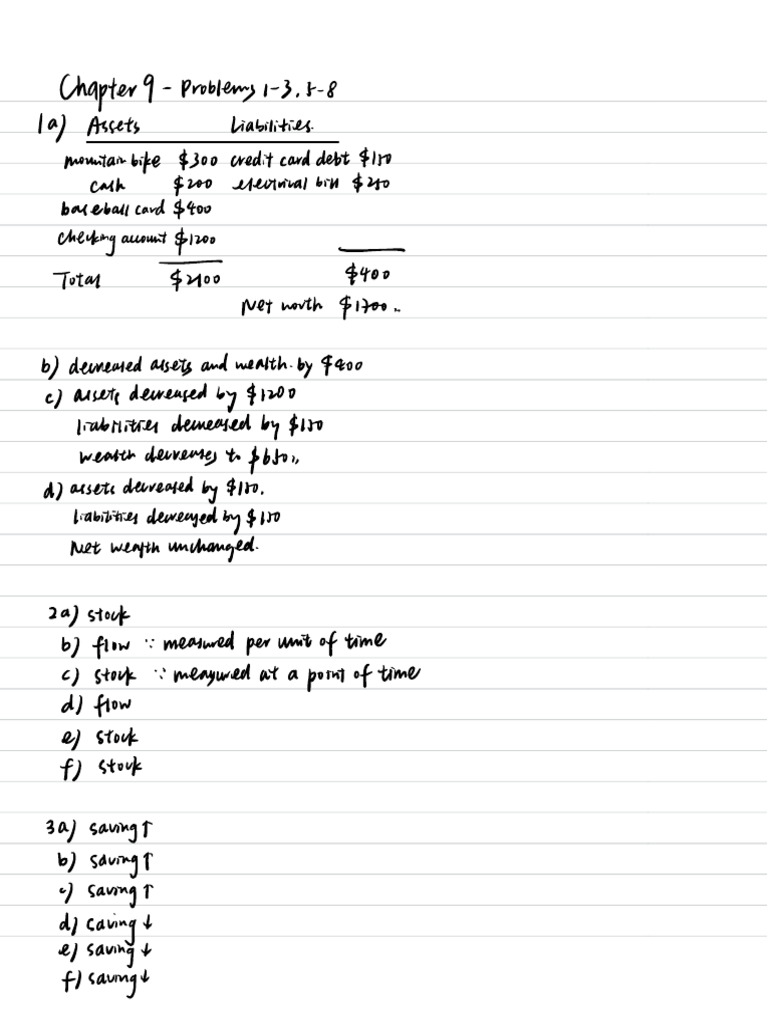 Chapter 9 - Problems 1-3, 5-8
1a) Assets Liabilities.
mountain bike $300 credit card debt $150
cash $200 electrical bill $250
baseball card $400
checking account $1200
Total $2100 $400
Net worth $1700
b) decreased assets and wealth by $400
c) assets decreased by $1200
liabilities decreased by $150
wealth decreases to $650
d) assets decreased by $150.
liabilities decreased by $150
Net wealth unchanged.
2a) stock
b) flow ∵ measured per unit of time
c) stock ∵ measured at a point of time
d) flow
e) stock
f) stock
3a) saving ↑
b) saving ↑
c) saving ↑
d) saving ↓
e) saving ↓
f) saving ↓